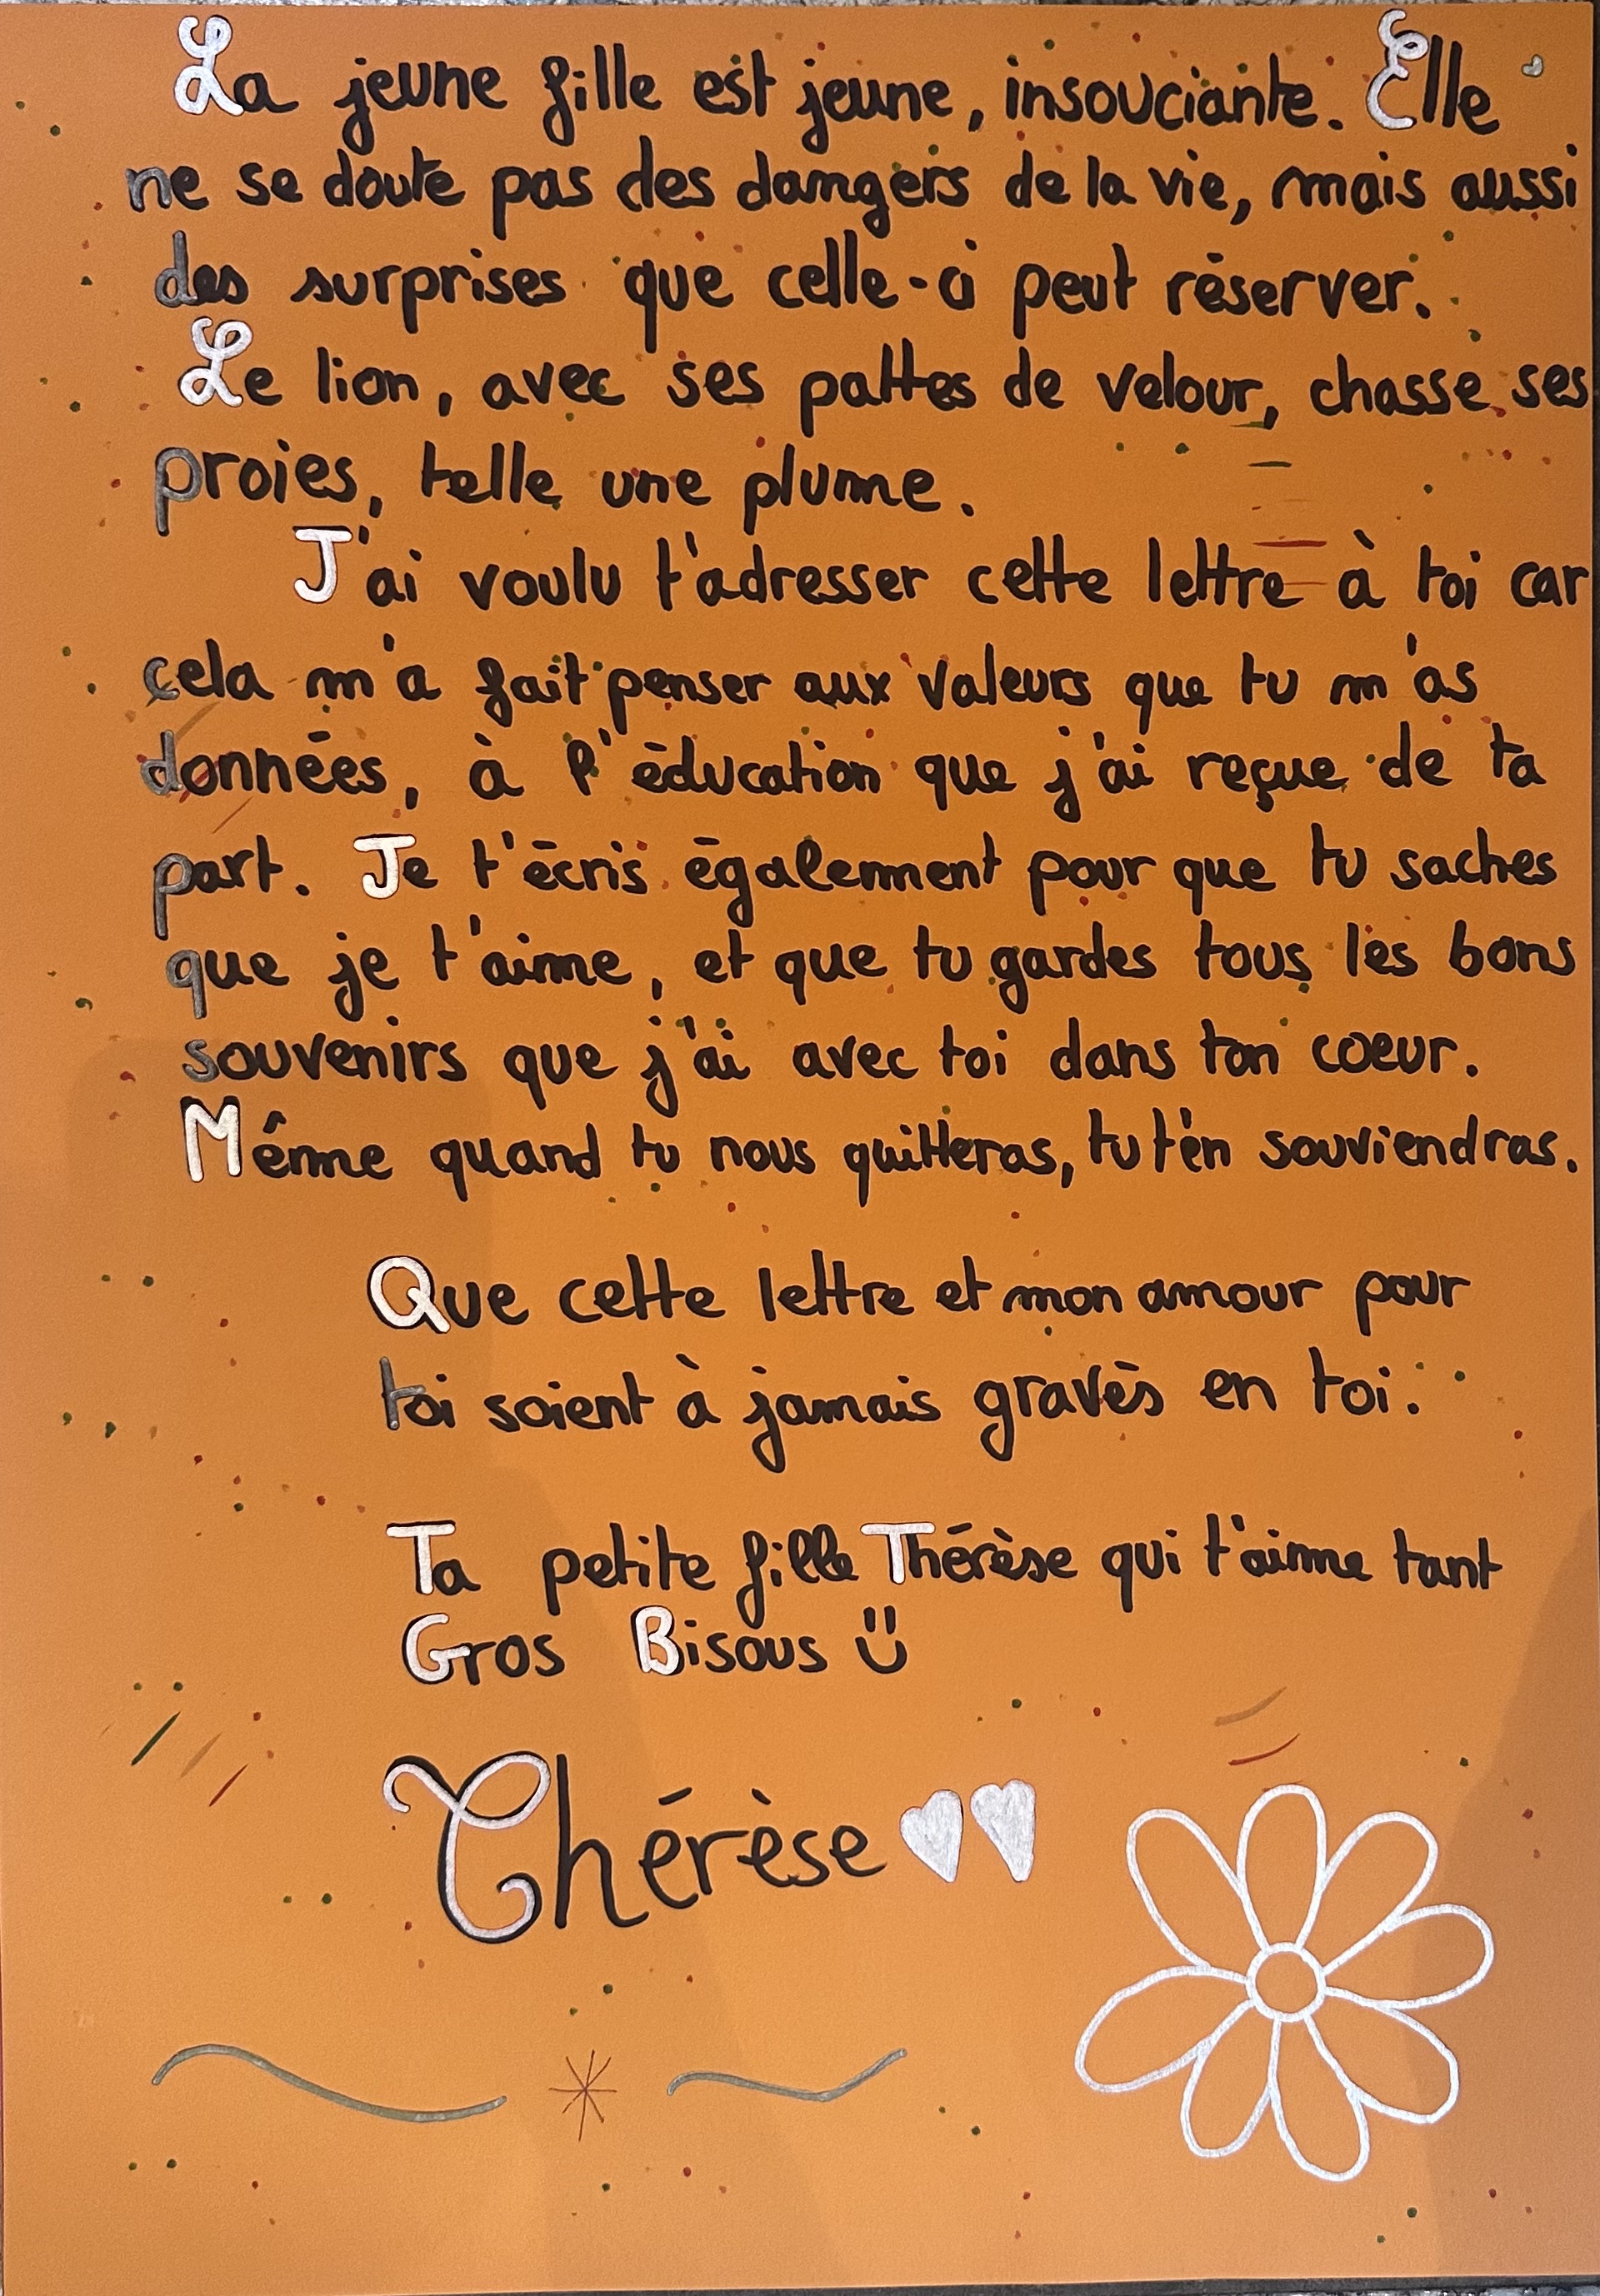 La jeune fille est jeune, insouciante. Elle
ne se doute pas des dangers de la vie, mais aussi
des surprises que celle-ci peut réserver.
Le lion, avec ses pattes de velour, chasse ses
proies, telle une plume.
J'ai voulu t'adresser cette lettre à toi car
cela m'a fait penser aux valeurs que tu m'as
données, à l'éducation que j'ai reçue de ta
part. Je t'écris également pour que tu saches
que je t'aime, et que tu gardes tous les bons
souvenirs que j'ai avec toi dans ton coeur.
Même quand tu nous quitteras, tu t'en souviendras.
Que cette lettre et mon amour pour
toi soient à jamais gravés en toi.
Ta petite fille Thérèse qui t'aime tant
Gros Bisous Ü
Thérèse